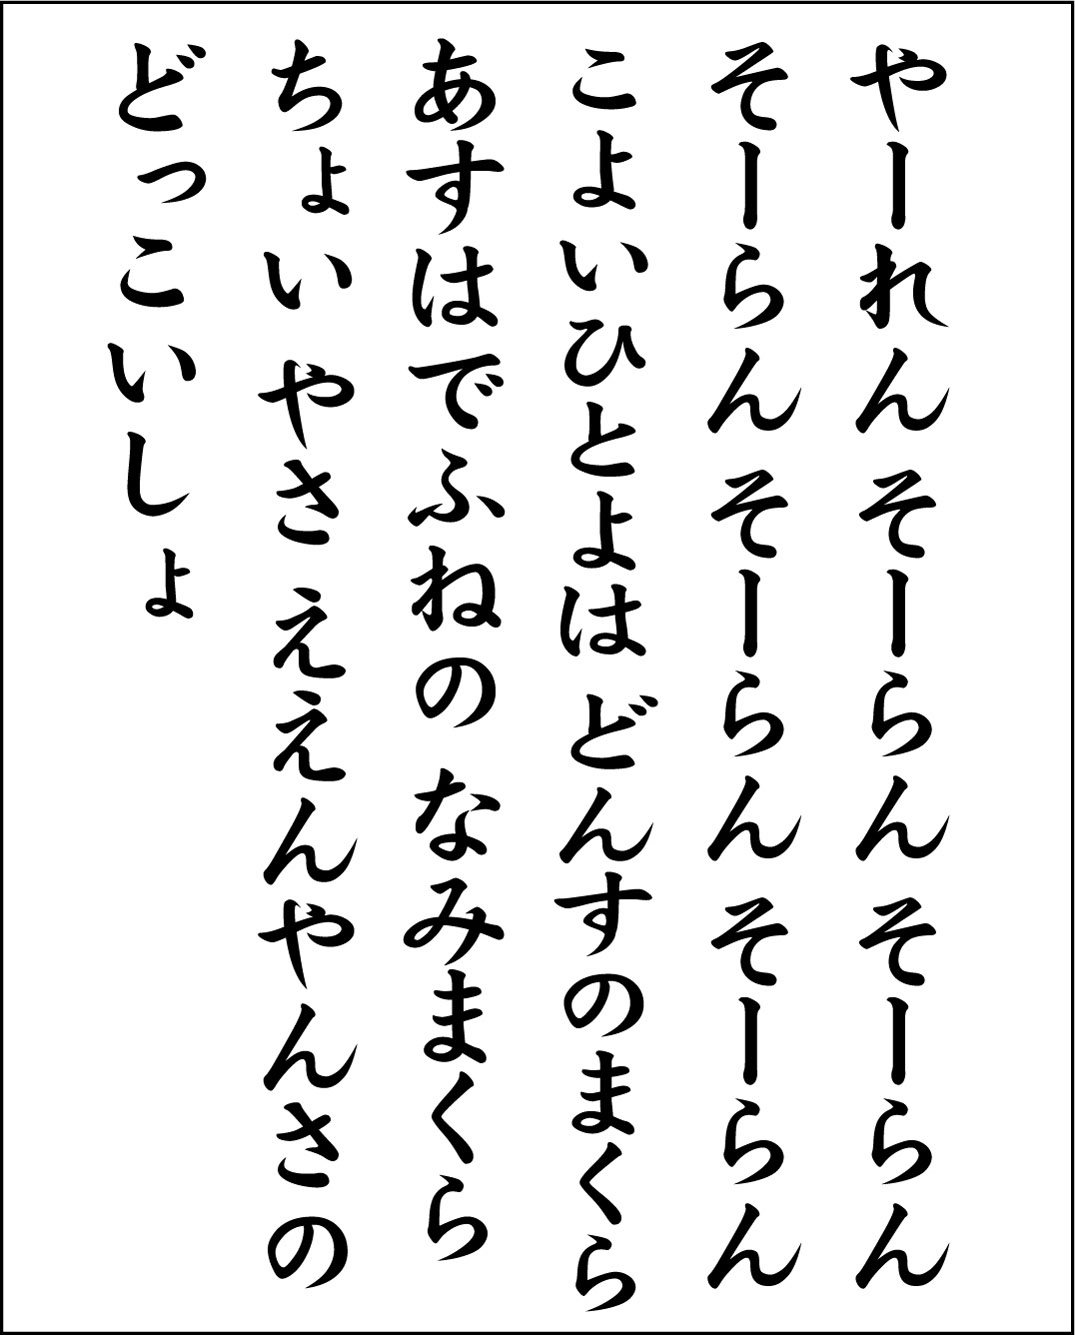 やーれん そーらん そーらん
そーらん そーらん そーらん
こよいひとよは どんすのまくら
あすはでふねの なみまくら
ちょい やさ ええんやんさの
どっこいしょ